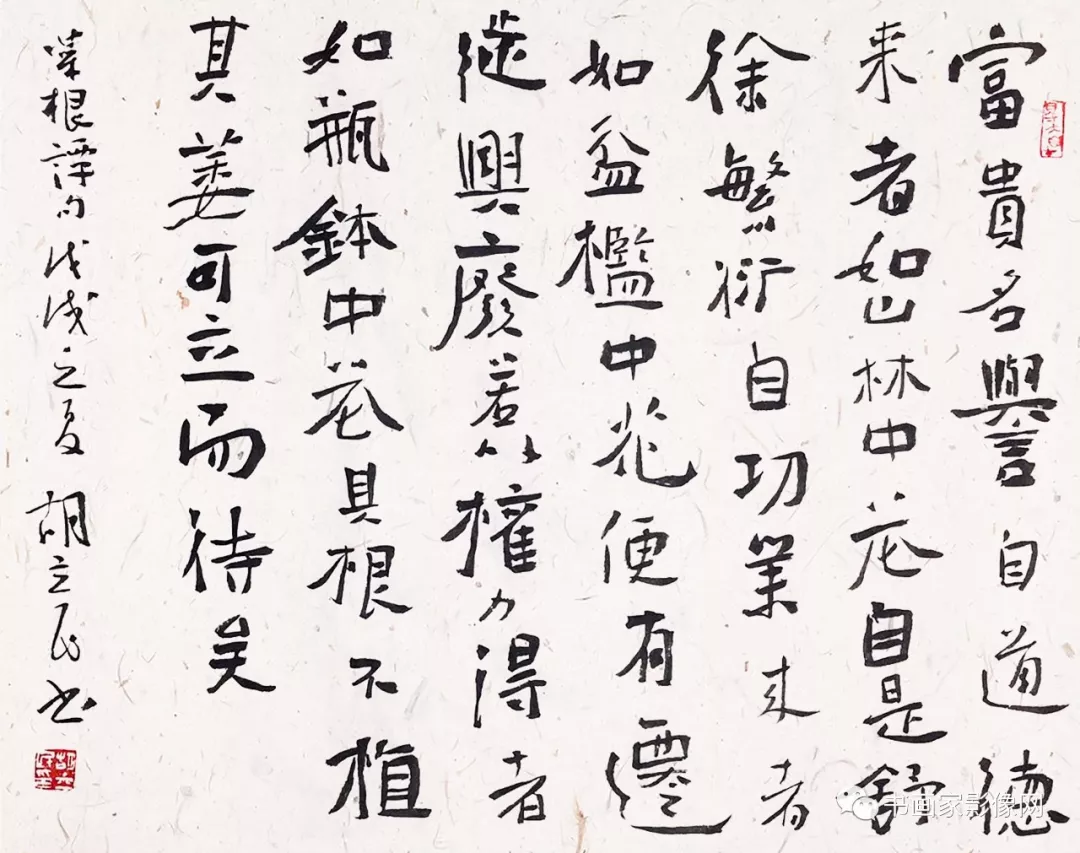 富貴名譽自道德
来者如山林中花自是舒
徐繁衍自功業来者
如盆檻中花便有遷
徙興廢若以權力得者
如瓶鉢中花其根不植
其萎可立而待矣
菜根譚句戊戌之夏 胡立民书
书画家影像网